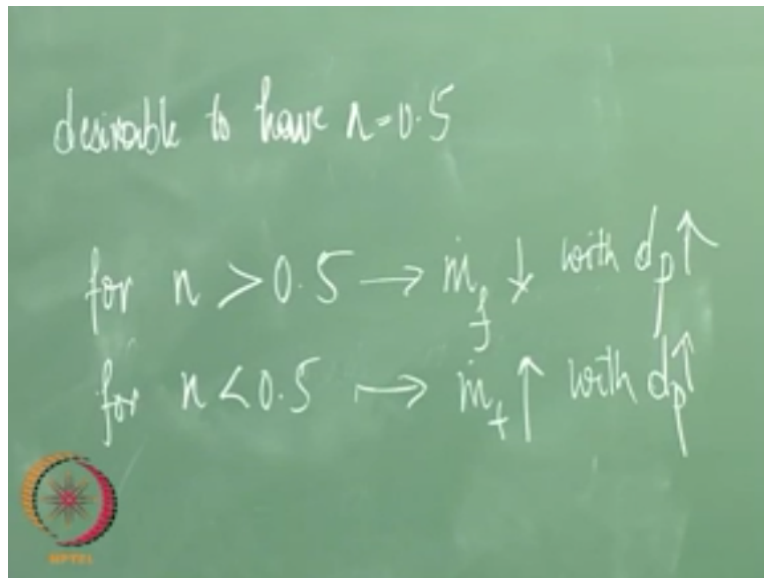 desirable to have n=0.5
for n > 0.5 → ṁ_f ↓ with d_p ↑
for n < 0.5 → ṁ_f ↑ with d_p ↑
NPTEL